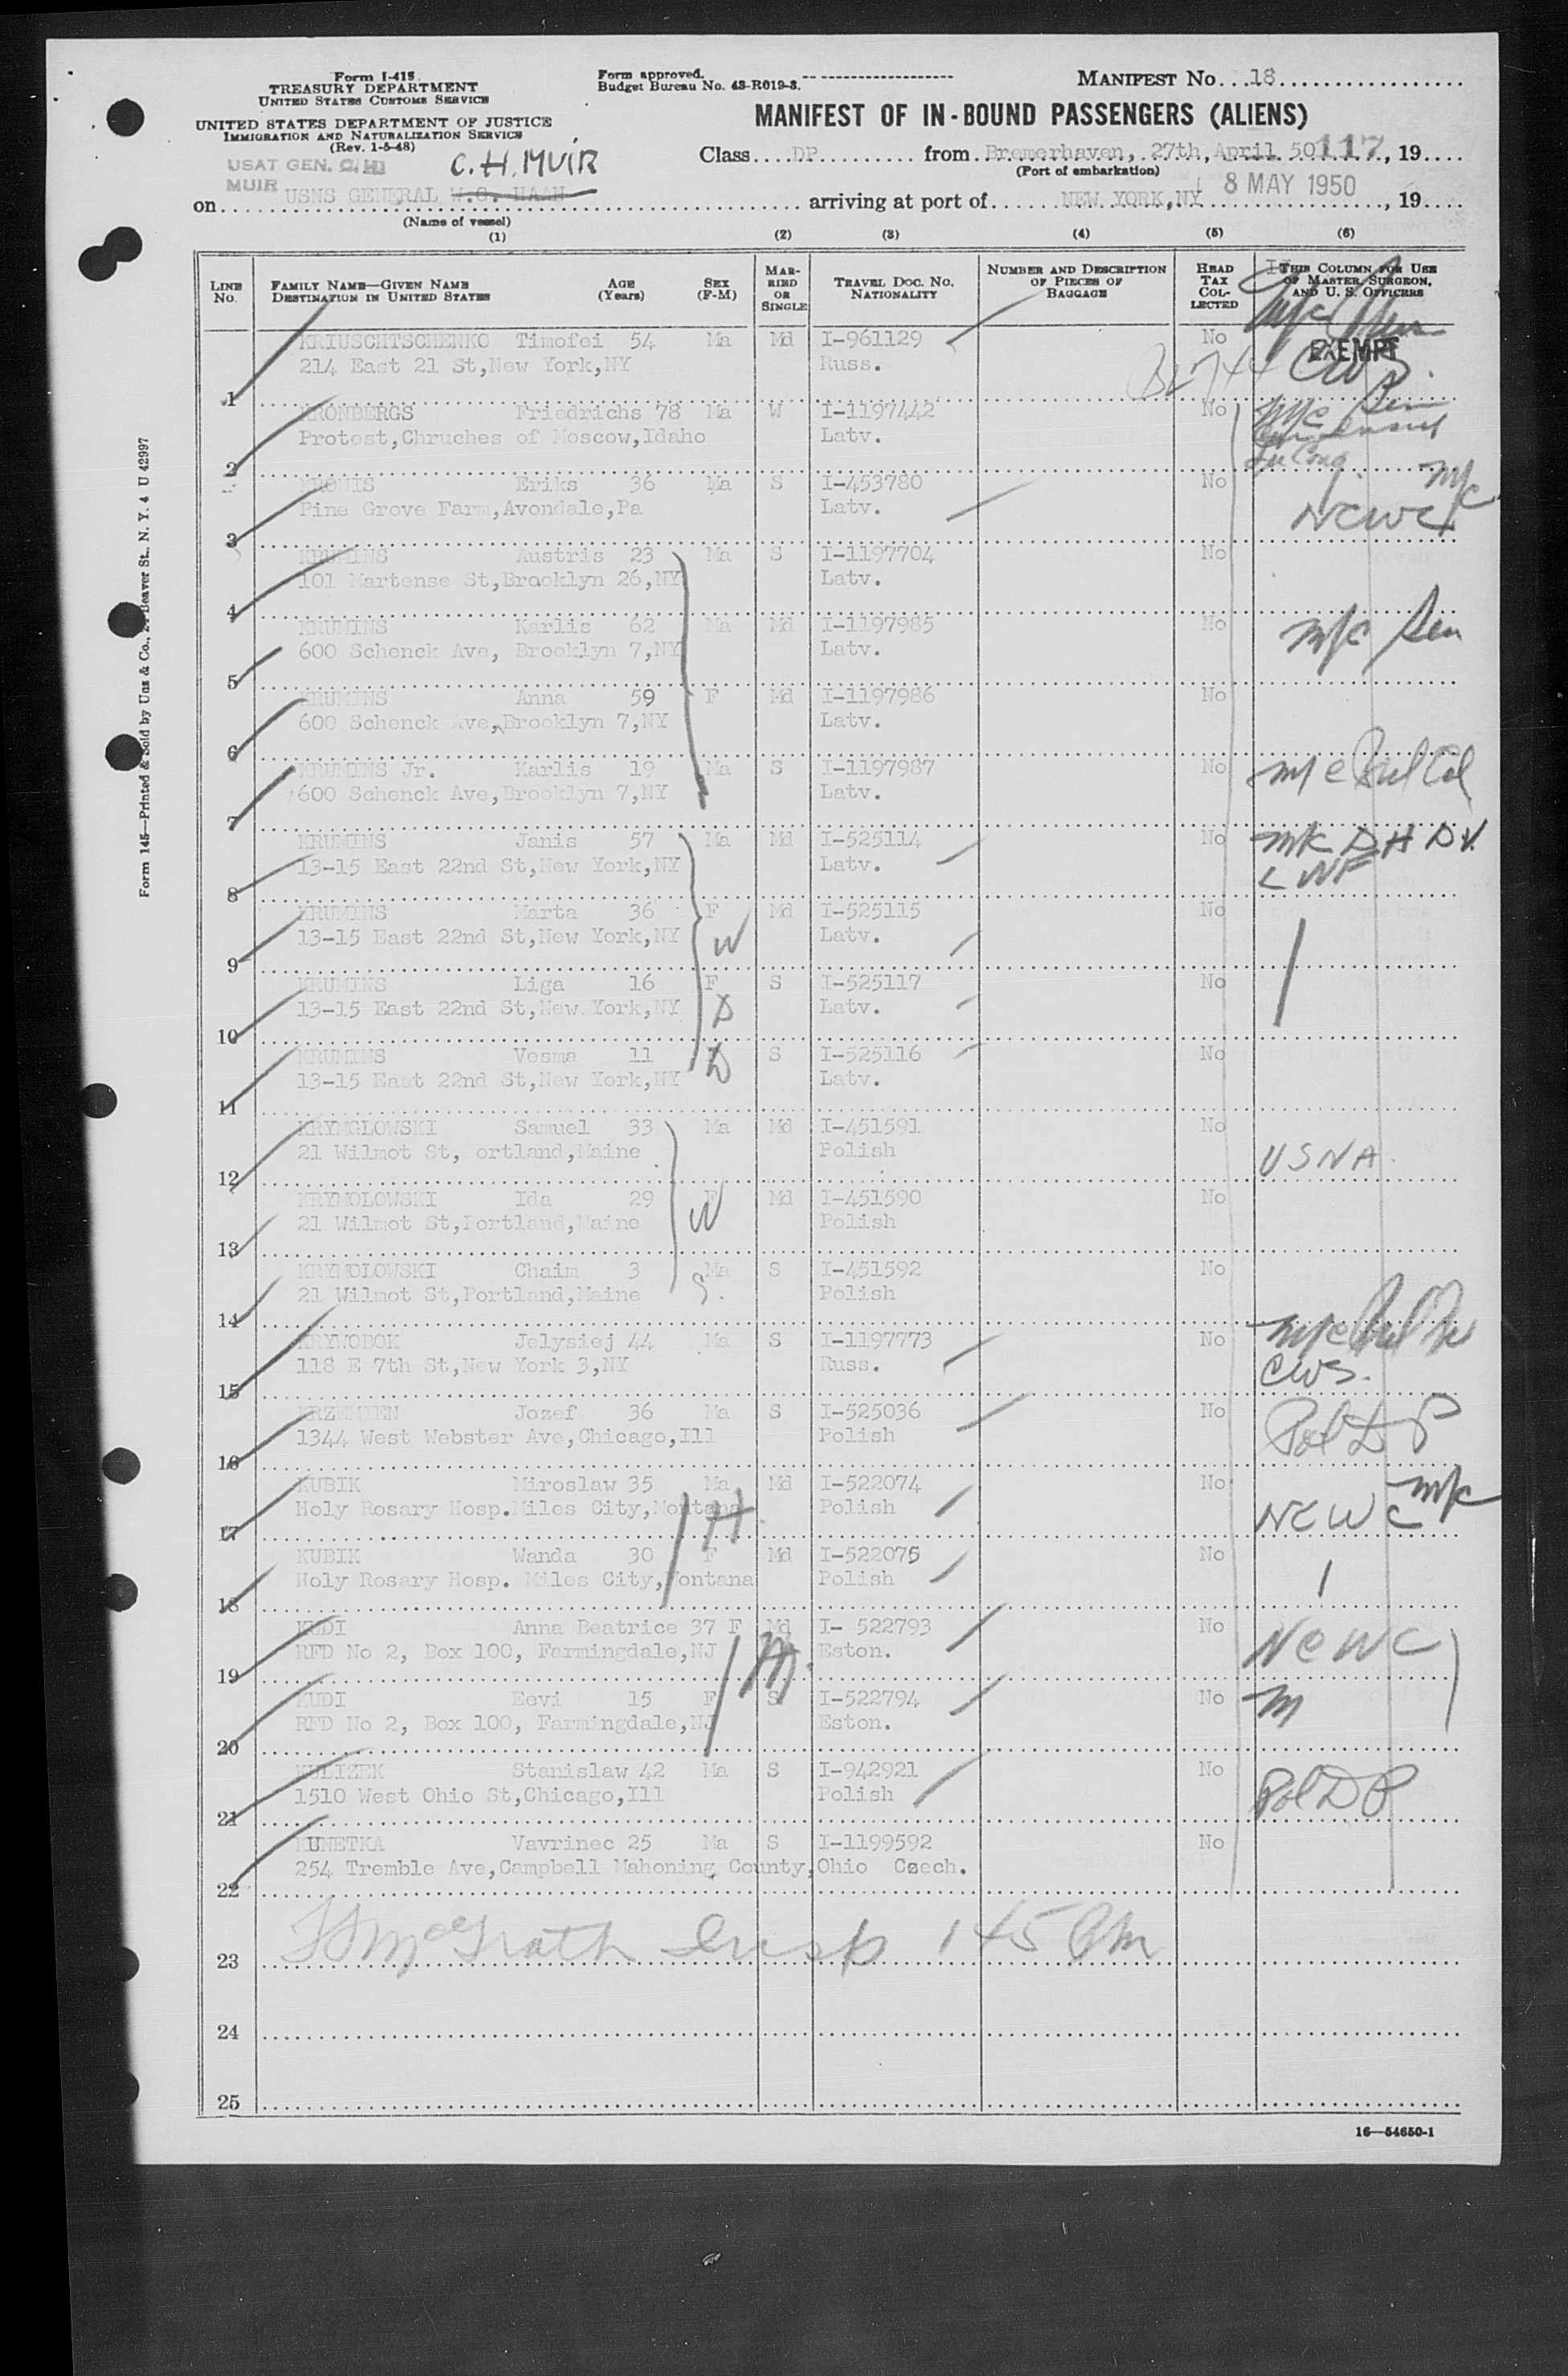 Form I-415
TREASURY DEPARTMENT
UNITED STATES CUSTOMS SERVICE
UNITED STATES DEPARTMENT OF JUSTICE
IMMIGRATION AND NATURALIZATION SERVICE
(Rev. 1-5-48)
Form approved.
Budget Bureau No. 43-R019-3.
MANIFEST No. 18
MANIFEST OF IN-BOUND PASSENGERS (ALIENS)
Class DP from Bremerhaven, 27th, April 50 117, 19
(Port of embarkation)
USAT GEN. C. H.
MUIR
C.H. MUIR
on USNS GENERAL W.G. HAAN arriving at port of NEW YORK,NY 8 MAY 1950, 19
(Name of vessel)
(1) (2) (3) (4) (5) (6)
LINE No. FAMILY NAME—GIVEN NAME DESTINATION IN UNITED STATES AGE (Years) SEX (F-M) MARRIED OR SINGLE TRAVEL DOC. NO. NATIONALITY NUMBER AND DESCRIPTION OF PIECES OF BAGGAGE HEAD TAX COLLECTED THIS COLUMN FOR USE OF MASTER, SURGEON, AND U. S. OFFICERS
KRIUSCHTSCHENKO Timofei 54 Ma Md I-961129 No EXEMPT
1 214 East 21 St,New York,NY Russ. CWS.
KRONBERGS Friedrichs 78 Ma W I-1197442 No
2 Protest,Chruches of Moscow,Idaho Latv.
Eriks 36 Ma S I-453780 No
3 Pine Grove Farm,Avondale,Pa Latv. NCWC
KRUMINS Austris 23 Ma S I-1197704 No
4 101 Martense St,Brooklyn 26,NY Latv.
KRUMINS Karlis 62 Ma Md I-1197985 No
5 600 Schenck Ave, Brooklyn 7,NY Latv.
KRUMINS Anna 59 F Md I-1197986 No
6 600 Schenck Ave,Brooklyn 7,NY Latv.
KRUMINS Jr. Karlis 19 Ma S I-1197987 No
7 600 Schenck Ave,Brooklyn 7,NY Latv.
KRUMINS Janis 57 Ma Md I-525114 No
8 13-15 East 22nd St,New York,NY Latv.
KRUMINS Marta 36 F Md I-525115 No
9 13-15 East 22nd St,New York,NY W Latv.
KRUMINS Liga 16 F S I-525117 No
10 13-15 East 22nd St,New York,NY D Latv.
KRUMINS Vesma 11 S I-525116 No
11 13-15 East 22nd St,New York,NY D Latv.
KRYMGLOWSKI Samuel 33 Ma Md I-451591 No
12 21 Wilmot St, ortland,Maine Polish USNA
KRYMOLOWSKI Ida 29 F Md I-451590 No
13 21 Wilmot St,Portland,Maine W Polish
KRYMOLOWSKI Chaim 3 Ma S I-451592 No
14 21 Wilmot St,Portland,Maine S. Polish
KRYWODOK Jelysiej 44 Ma S I-1197773 No
15 118 E 7th St,New York 3,NY Russ. CWS.
KRZEMIEN Jozef 36 Ma S I-525036 No
16 1344 West Webster Ave,Chicago,Ill Polish Pol D P
KUBIK Miroslaw 35 Ma Md I-522074 No
17 Holy Rosary Hosp.Miles City,Montana H Polish NCWC
KUBIK Wanda 30 F Md I-522075 No
18 Holy Rosary Hosp. Miles City,Montana Polish
KUDI Anna Beatrice 37 F Md I- 522793 No
19 RFD No 2, Box 100, Farmingdale,NJ M Eston. NCWC
KUDI Eevi 15 F S I-522794 No
20 RFD No 2, Box 100, Farmingdale,NJ Eston.
KULIZEK Stanislaw 42 Ma S I-942921 No
21 1510 West Ohio St,Chicago,Ill Polish Pol D P
KUNETKA Vavrinec 25 Ma S I-1199592 No
22 254 Tremble Ave,Campbell Mahoning County,Ohio Czech.
23 McGrath Insp 145 Pm
24
25
16—54650-1
Form 145—Printed & Sold by Unz & Co., Beaver St., N. Y. 4 U 42997